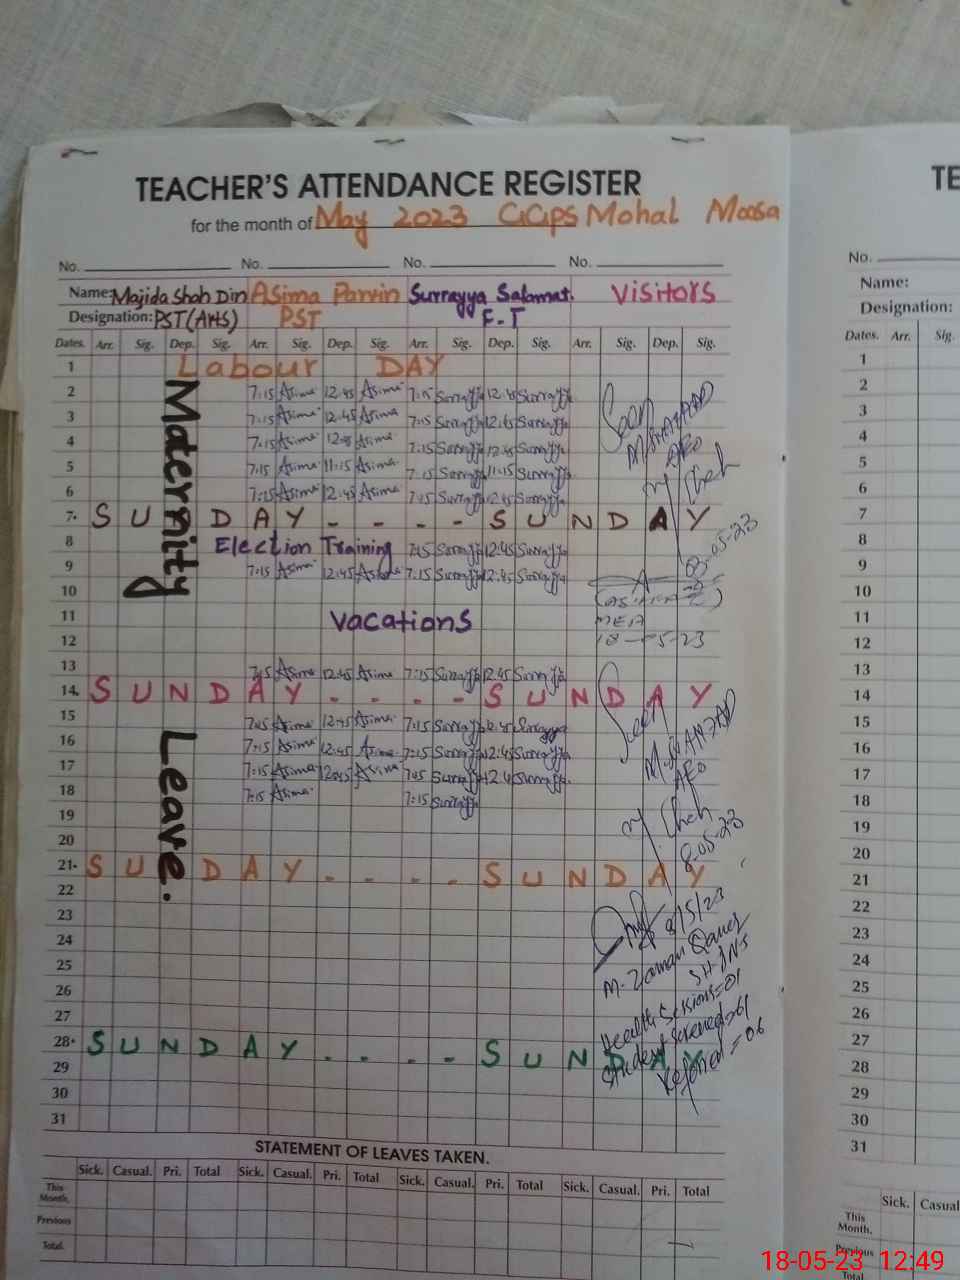 TEACHER'S ATTENDANCE REGISTER
for the month of May 2023 GGPS Mohal Moosa
No. No. No. No.
Name: Majida Shah Din Asima Parvin Surrayya Salamat. Visitors
Designation: PST (Arts) PST E.T
Dates. Arr. Sig. Dep. Sig. Arr. Sig. Dep. Sig. Arr. Sig. Dep. Sig. Arr. Sig. Dep. Sig.
1 Labour DAY
2 7:15 Asima 12:45 Asima 7:15 Surrayya 12:45 Surrayya
3 7:15 Asima 12:45 Asima 7:15 Surrayya 12:45 Surrayya
4 7:15 Asima 12:45 Asima 7:15 Surrayya 12:45 Surrayya
5 7:15 Asima 11:15 Asima 7:15 Surrayya 11:15 Surrayya
6 7:15 Asima 12:45 Asima 7:15 Surrayya 12:45 Surrayya
7. SUNDAY - - - - SUNDAY
8 Election Training 7:15 Surrayya 12:45 Surrayya
9 7:15 Asima 12:45 Asima 7:15 Surrayya 12:45 Surrayya
10
11 Vacations
12
13 7:15 Asima 12:45 Asima 7:15 Surrayya 12:45 Surrayya
14. SUNDAY - - - - SUNDAY
15 7:15 Asima 12:45 Asima 7:15 Surrayya 12:45 Surrayya
16 7:15 Asima 12:45 Asima 7:15 Surrayya 12:45 Surrayya
17 7:15 Asima 12:45 Asima 7:15 Surrayya 12:45 Surrayya
18 7:15 Asima 7:15 Surrayya
19
20
21. SUNDAY - - - - SUNDAY
22
23
24
25
26
27
28. SUNDAY - - - - SUNDAY
29
30
31
Maternity Leave.
Seen
AEO
03-05-23
MEA
18-05-23
Seen
AEO
8-05-23
8/5/23
M. Zaman
SH&NS
Health Sessions=01
Student Screened=61
Referral=06
STATEMENT OF LEAVES TAKEN.
Sick. Casual. Pri. Total Sick. Casual. Pri. Total Sick. Casual. Pri. Total Sick. Casual. Pri. Total
This Month.
Previous
Total.
TE
No.
Name:
Designation:
Dates. Arr. Sig.
1
2
3
4
5
6
7
8
9
10
11
12
13
14
15
16
17
18
19
20
21
22
23
24
25
26
27
28
29
30
31
Sick. Casual
This Month.
Previous
Total
18-05-23 12:49